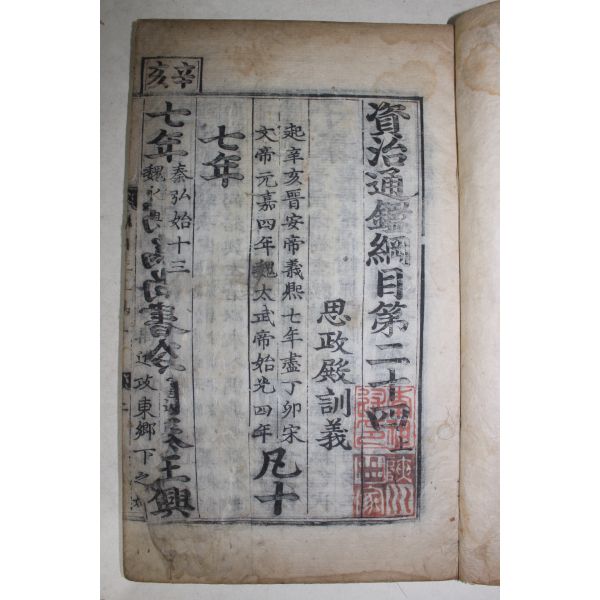 資治通鑑綱目第二十四上
思政殿訓義
起辛亥晉安帝義熙七年盡丁卯宋
文帝元嘉四年魏太武帝始光四年
凡十
七年
辛亥
七年
秦弘始十三
魏
尚書令
王興
攻東鄉下之
陜川
世家